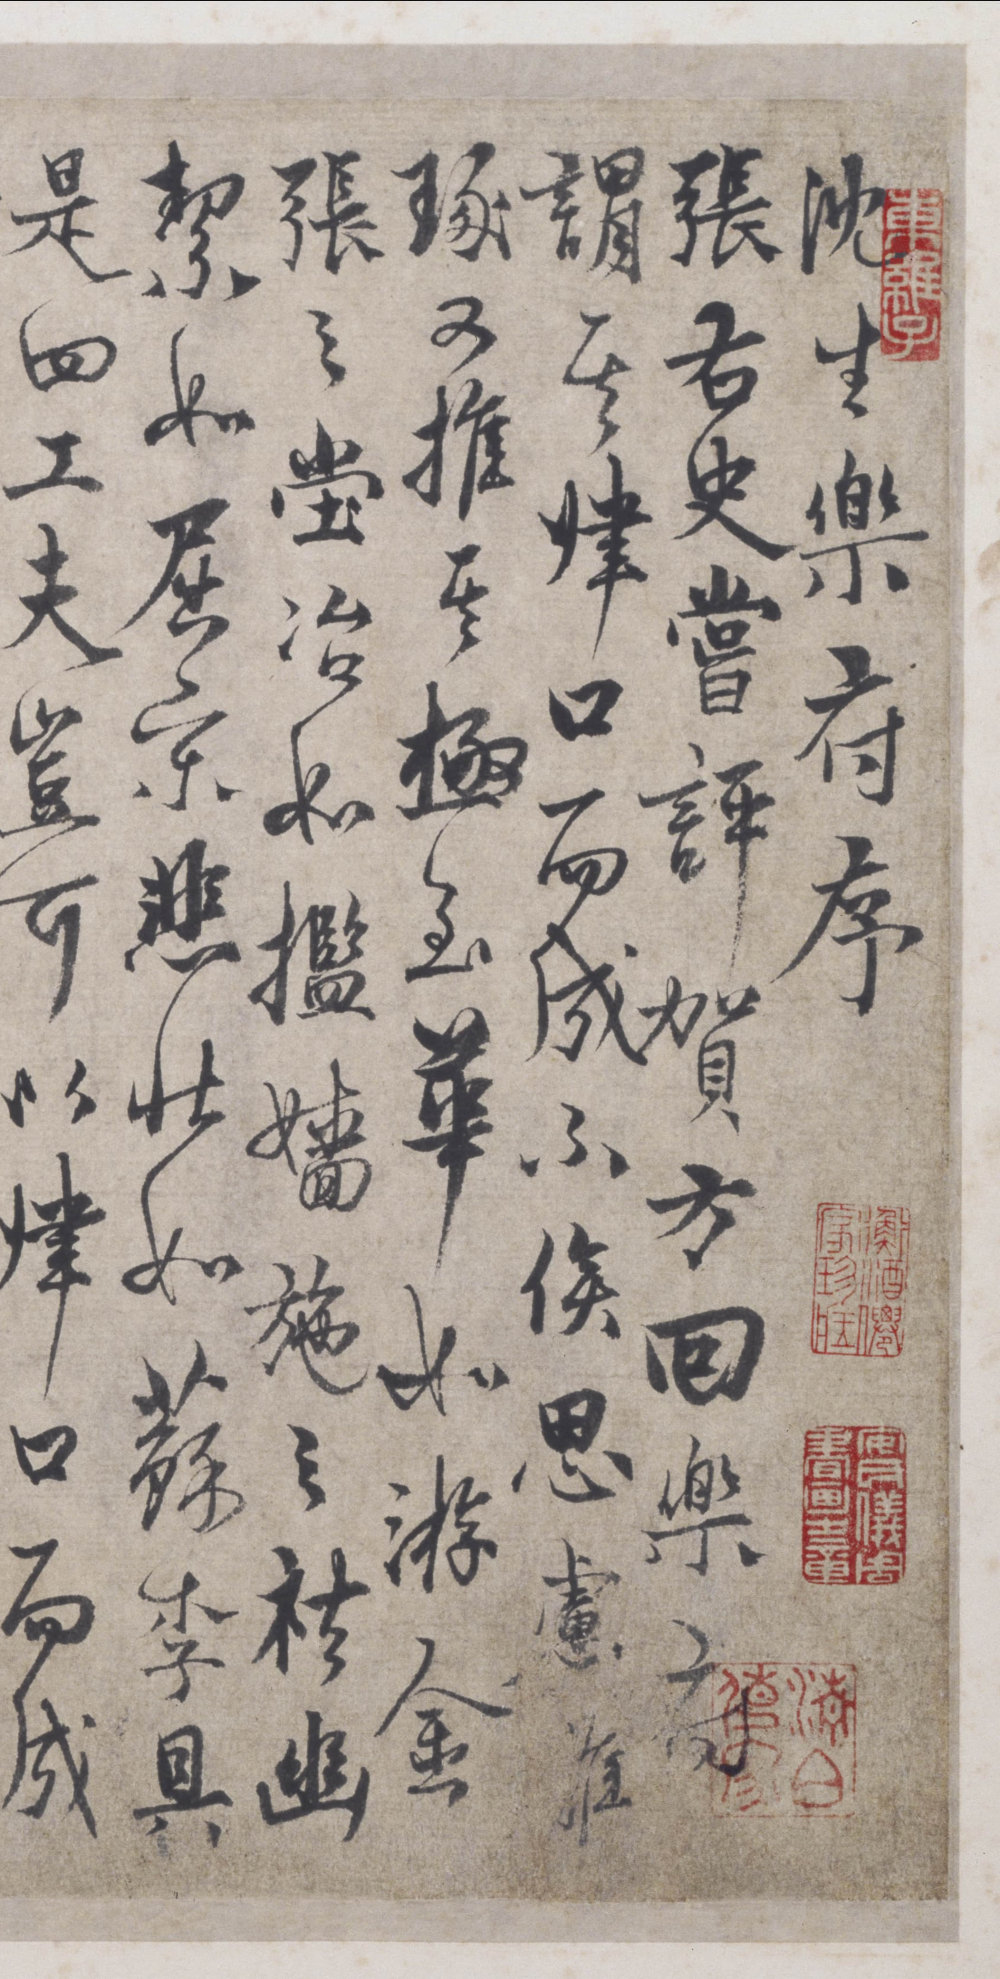 沈生樂府序
張右史嘗評賀方回樂府
謂其肆口而成不俟思慮雕
琢又推其極至華如游金
張之堂冶如攬嬙施之袪幽
絜如屈宋悲壯如蘇李具
是四工夫豈可以肆口而成
東維子